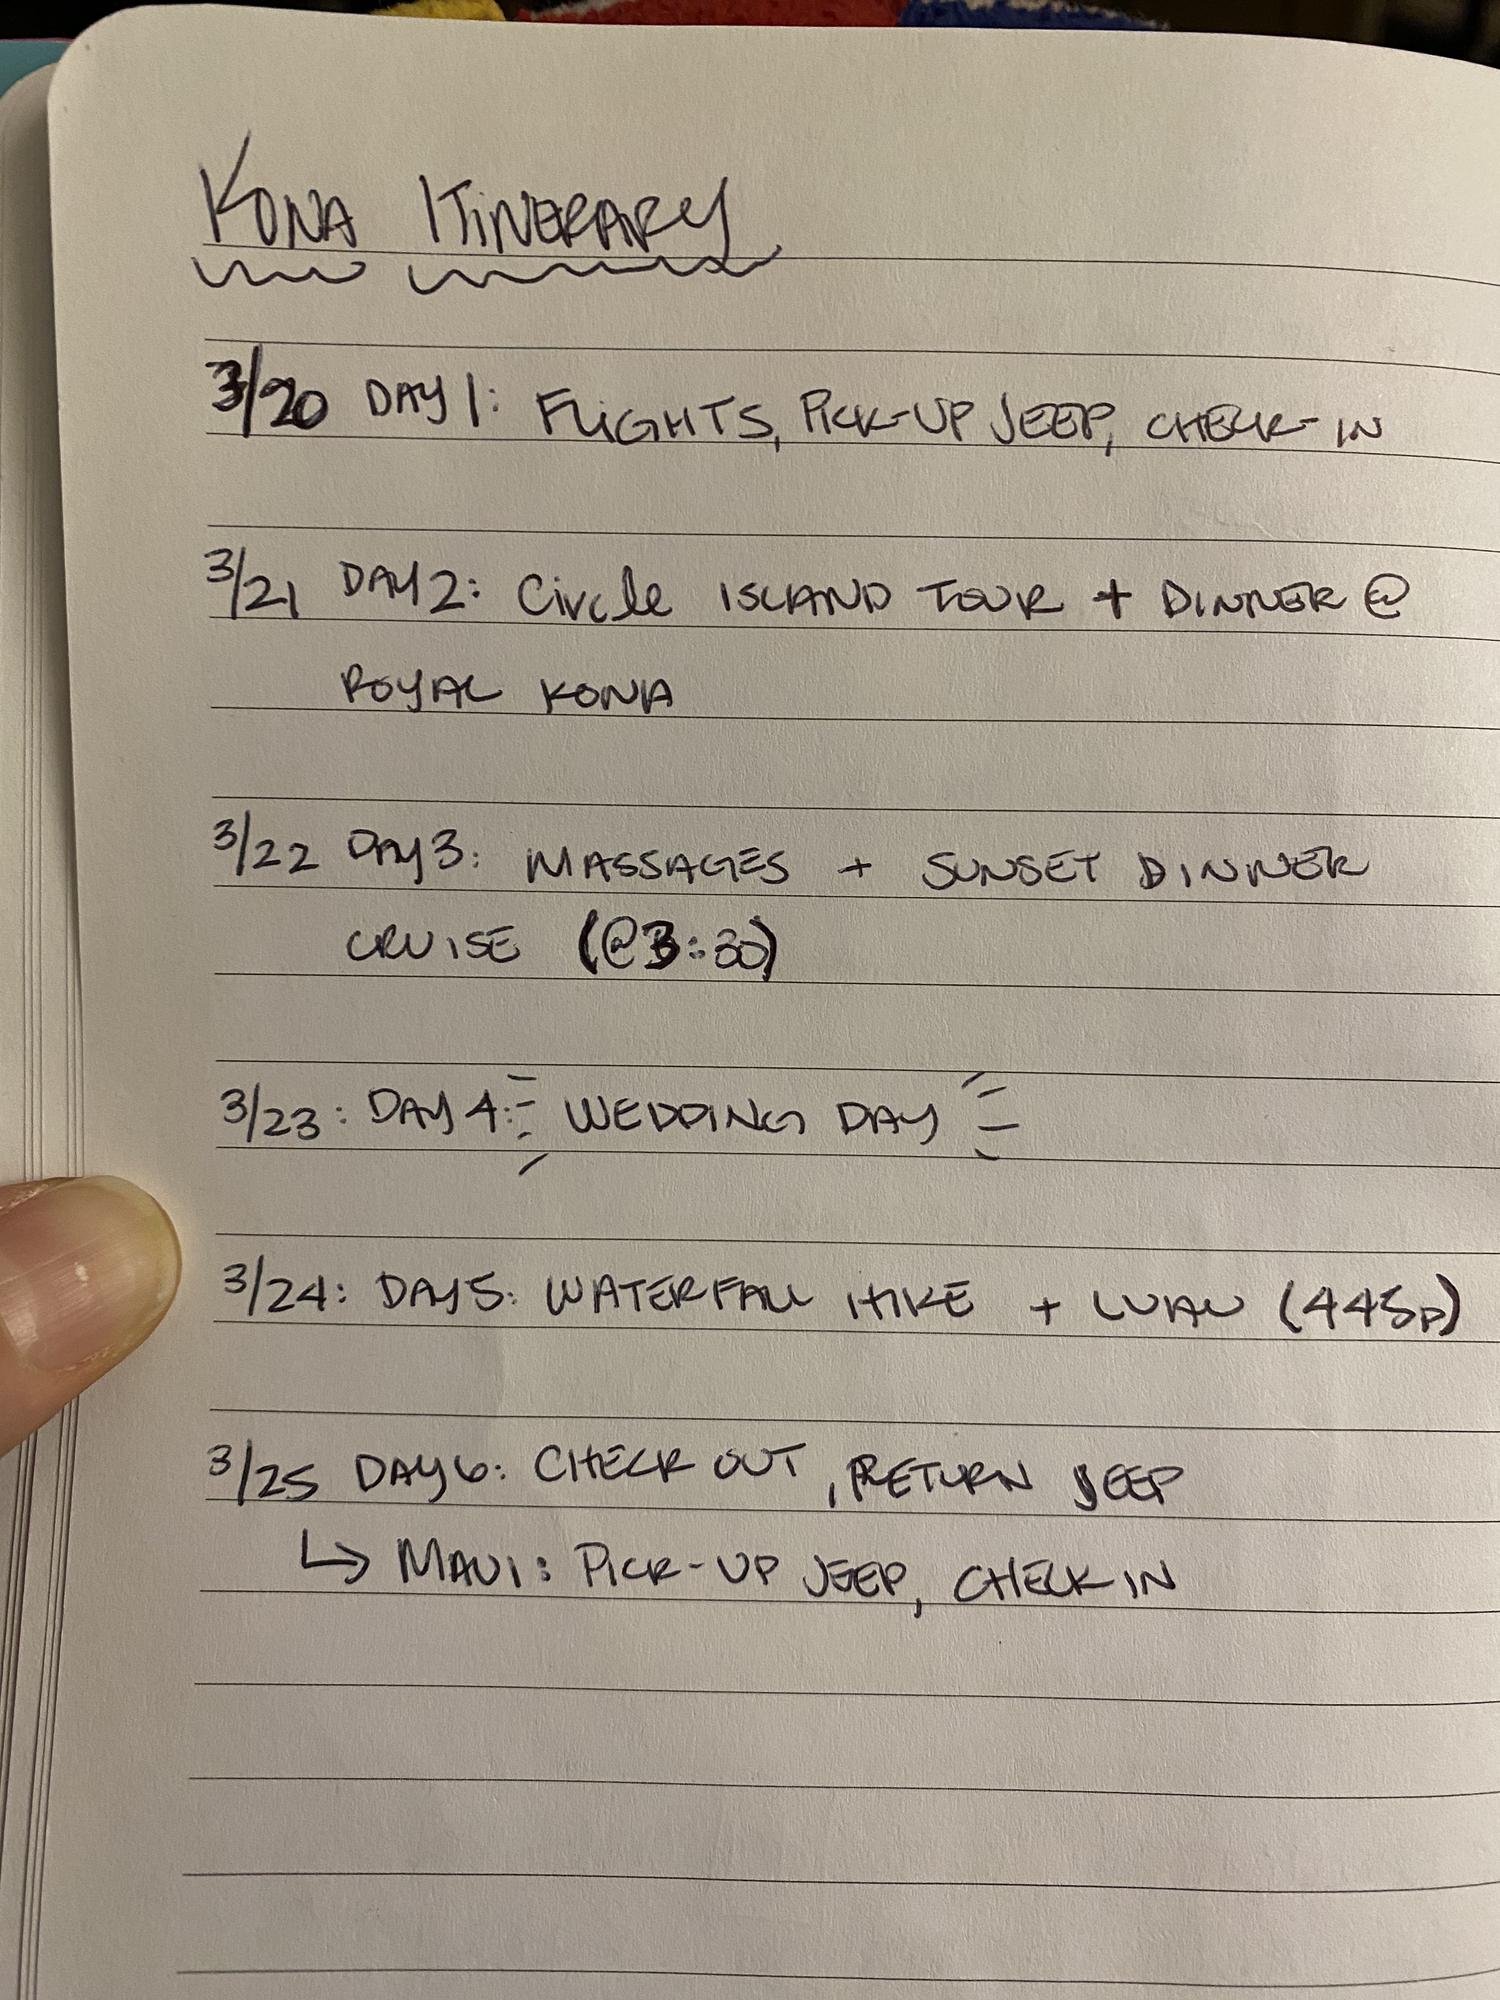 KONA ITINERARY
3/20 DAY 1: FLIGHTS, PICK-UP JEEP, CHECK-IN
3/21 DAY 2: Circle ISLAND TOUR + DINNER @
ROYAL KONA
3/22 DAY 3: MASSAGES + SUNSET DINNER
CRUISE (@3:30)
3/23: DAY 4: WEDDING DAY
3/24: DAY 5: WATERFALL HIKE + LUAU (445p)
3/25 DAY 6: CHECK OUT, RETURN JEEP
↳ MAUI: PICK-UP JEEP, CHECK IN